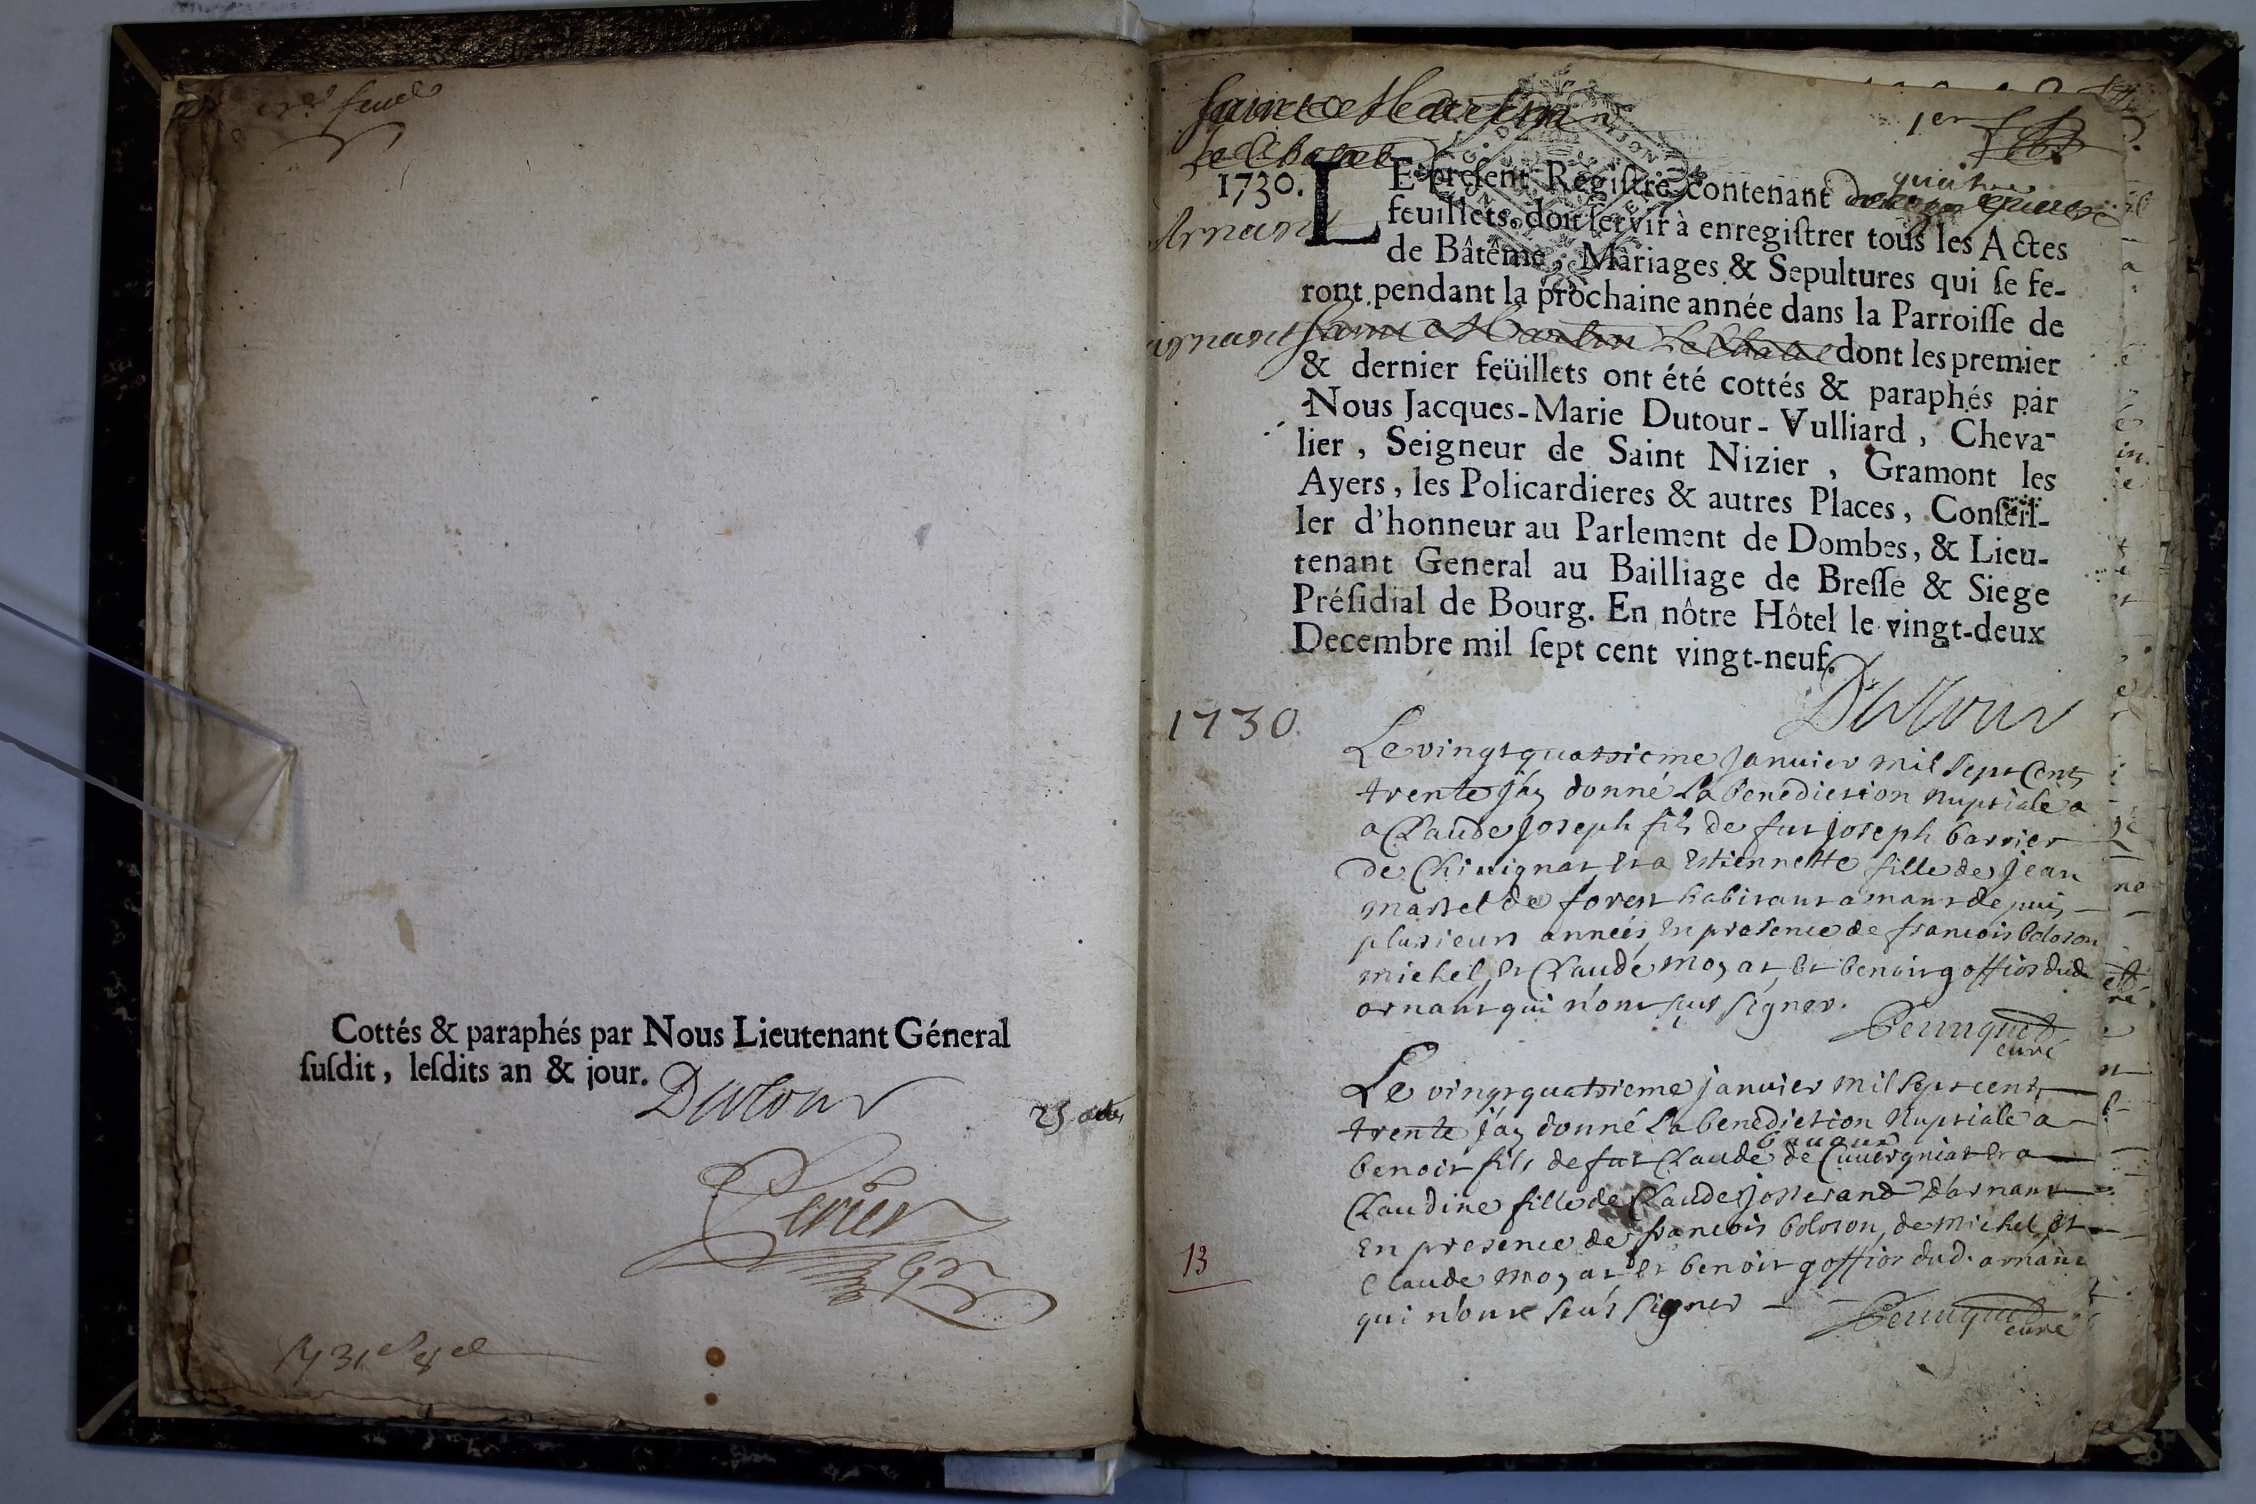 feuel
Cottés & paraphés par Nous Lieutenant Géneral
ſuſdit, leſdits an & jour. Dutour
25 actes
Perier
Sainct Martin
Le Chatel
1er
1730.
Arnans
quatre
LE preſent Regiſtre contenant
feuillets, doit ſervir à enregiſtrer tous les Actes
de Bâtême, Mariages & Sepultures qui ſe fe-
ront pendant la prochaine année dans la Parroiſſe de
arnans Sainct Martin Le Chatel dont les premier
& dernier feüillets ont été cottés & paraphés par
Nous Jacques-Marie Dutour-Vulliard, Cheva-
lier, Seigneur de Saint Nizier, Gramont les
Ayers, les Policardieres & autres Places, Conſeil-
ler d'honneur au Parlement de Dombes, & Lieu-
tenant General au Bailliage de Breſſe & Siege
Préſidial de Bourg. En nôtre Hôtel le vingt-deux
Decembre mil ſept cent vingt-neuf.
Dutour
1730.
Le vingt quatrieme Janvier mil sept Cents
trente j'ay donné la benediction nuptiale a
a Claude Joseph fils de fut Joseph barrier
de Chivignat et a Estiennette fille de Jean
martel de forest habitant a mans depuis
plusieurs années, En presence de francois boloson
michel, et Claude moyat et benoit goffior dud.
arnans qui n'ont sçut signer.
curé
Le vingt quatrieme janvier mil sept cents
trente j'ay donné la benediction Nuptiale a
benoit fils de fut Claude de Cuvergniat et a
Claudine fille de Claude josserand d'arnans
En presence de francois boloson, de michel, et
Claude moyat et benoit goffior dud. arnans
qui n'ont sçus signer
curé
13